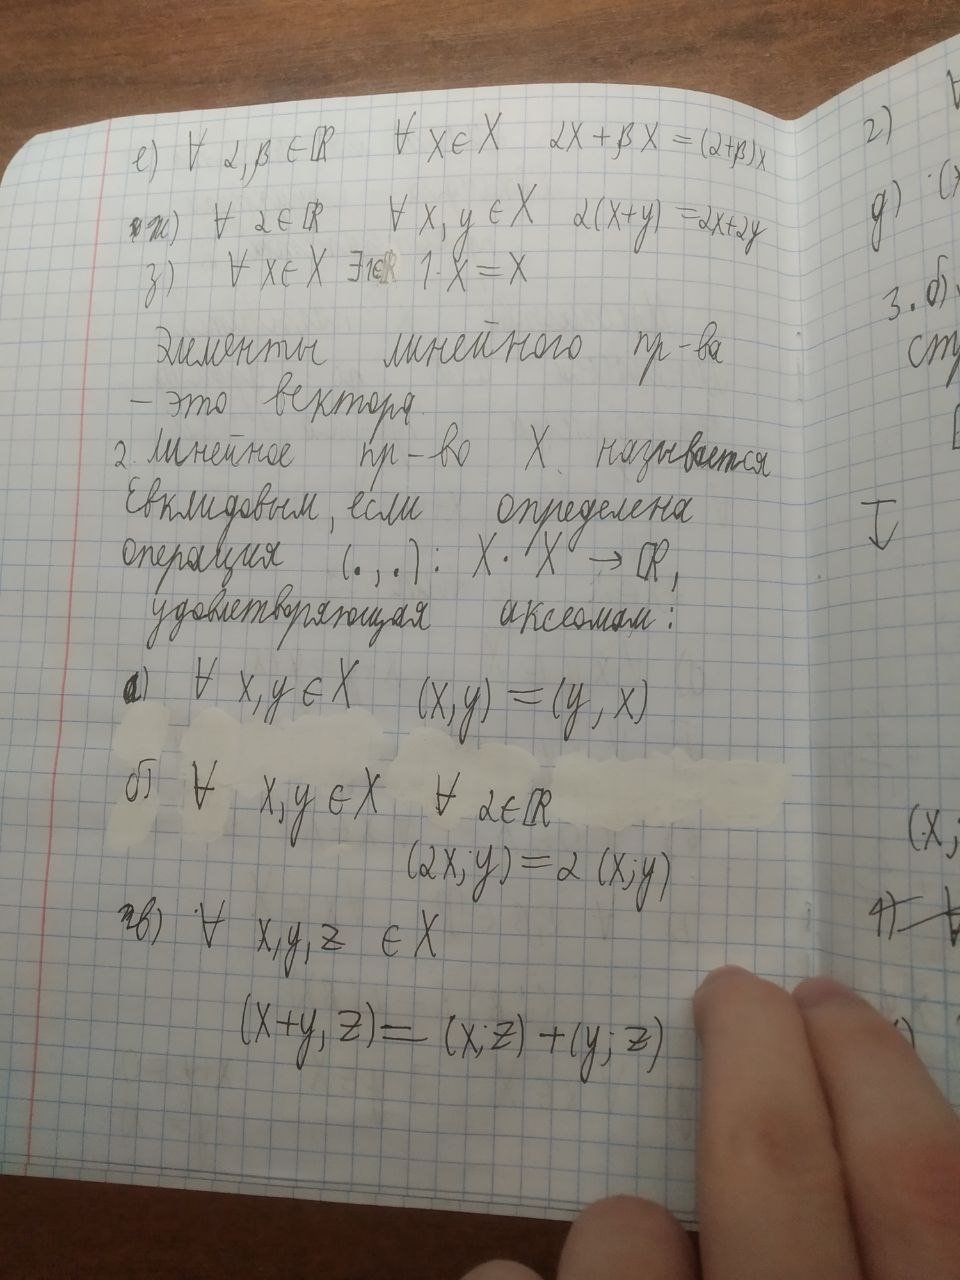 е) ∀ α, β ∈ ℝ ∀ x ∈ X αx + βx = (α+β)x
ж) ∀ α ∈ ℝ ∀ x, y ∈ X α(x+y) = αx+αy
з) ∀ x ∈ X ∃ 1 ∈ ℝ 1·x = x
Элементы линейного пр-ва
– это вектора
2. Линейное пр-во X называется
Евклидовым, если определена
операция (.,.): X · X → ℝ,
удовлетворяющая аксиомам:
а) ∀ x, y ∈ X (x, y) = (y, x)
б) ∀ x, y ∈ X ∀ α ∈ ℝ
(αx; y) = α (x; y)
в) ∀ x, y, z ∈ X
(x+y, z) = (x; z) + (y; z)
г)
д)
3. б)